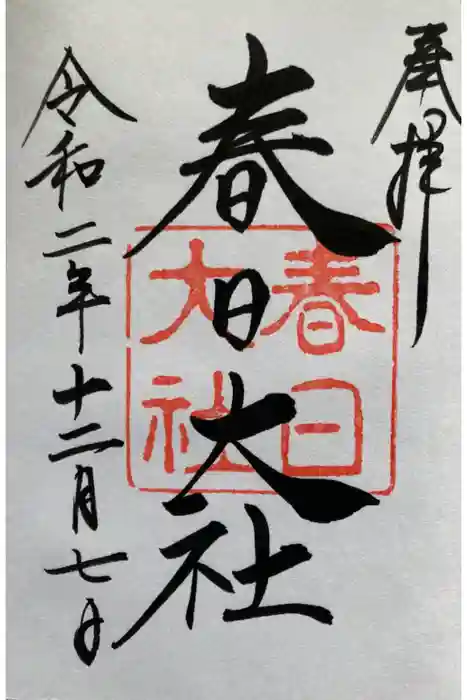 奉拝
春日大社
春日
大社
令和二年十二月七日